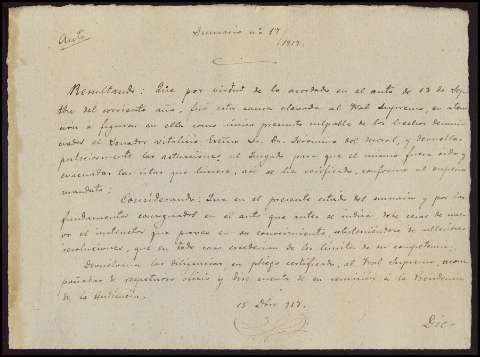 Auto
Sumario nº 17
1917.
Resultando: Que por virtud de lo acordado en el auto de 13 de Sep-
tbre del corriente año, fué esta causa elevada al Tbal Supremo, en aten-
ción a figurar en ella como único presunto culpable de los hechos denun-
ciados el Senador vitalicio Excmo. Sr. Dn. Jerónimo del Moral, y devueltas
posteriormente las actuaciones, al Juzgado para que el mismo fuera oido y
evacuadas las citas que hiciera, así se ha verificado, conforme al superior
mandato;
Considerando: Que en el presente estado del sumario y por los
fundamentos consignados en el auto que antes se indica debe cesar de nue-
vo el instructor que provee en su conocimiento, absteniéndose de ulteriores
resoluciones, que en todo caso excederian de los límites de su competencia;
Devuélvanse las diligencias, en pliego certificado, al Tbal Supremo, acom-
pañadas de respetuoso oficio y dése cuenta de su remisión á la Presidencia
de la Audiencia.
15 Dbre 917.